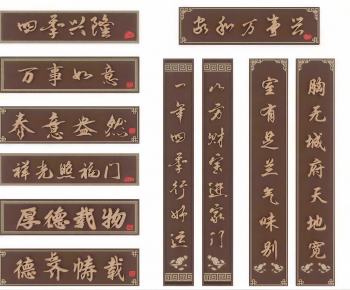 四季兴隆
万事如意
春意盎然
祥光照福门
厚德载物
德帱载
家和万事兴
一年四季行好运
八方财宝进家门
室有芝兰气味别
胸无城府天地宽